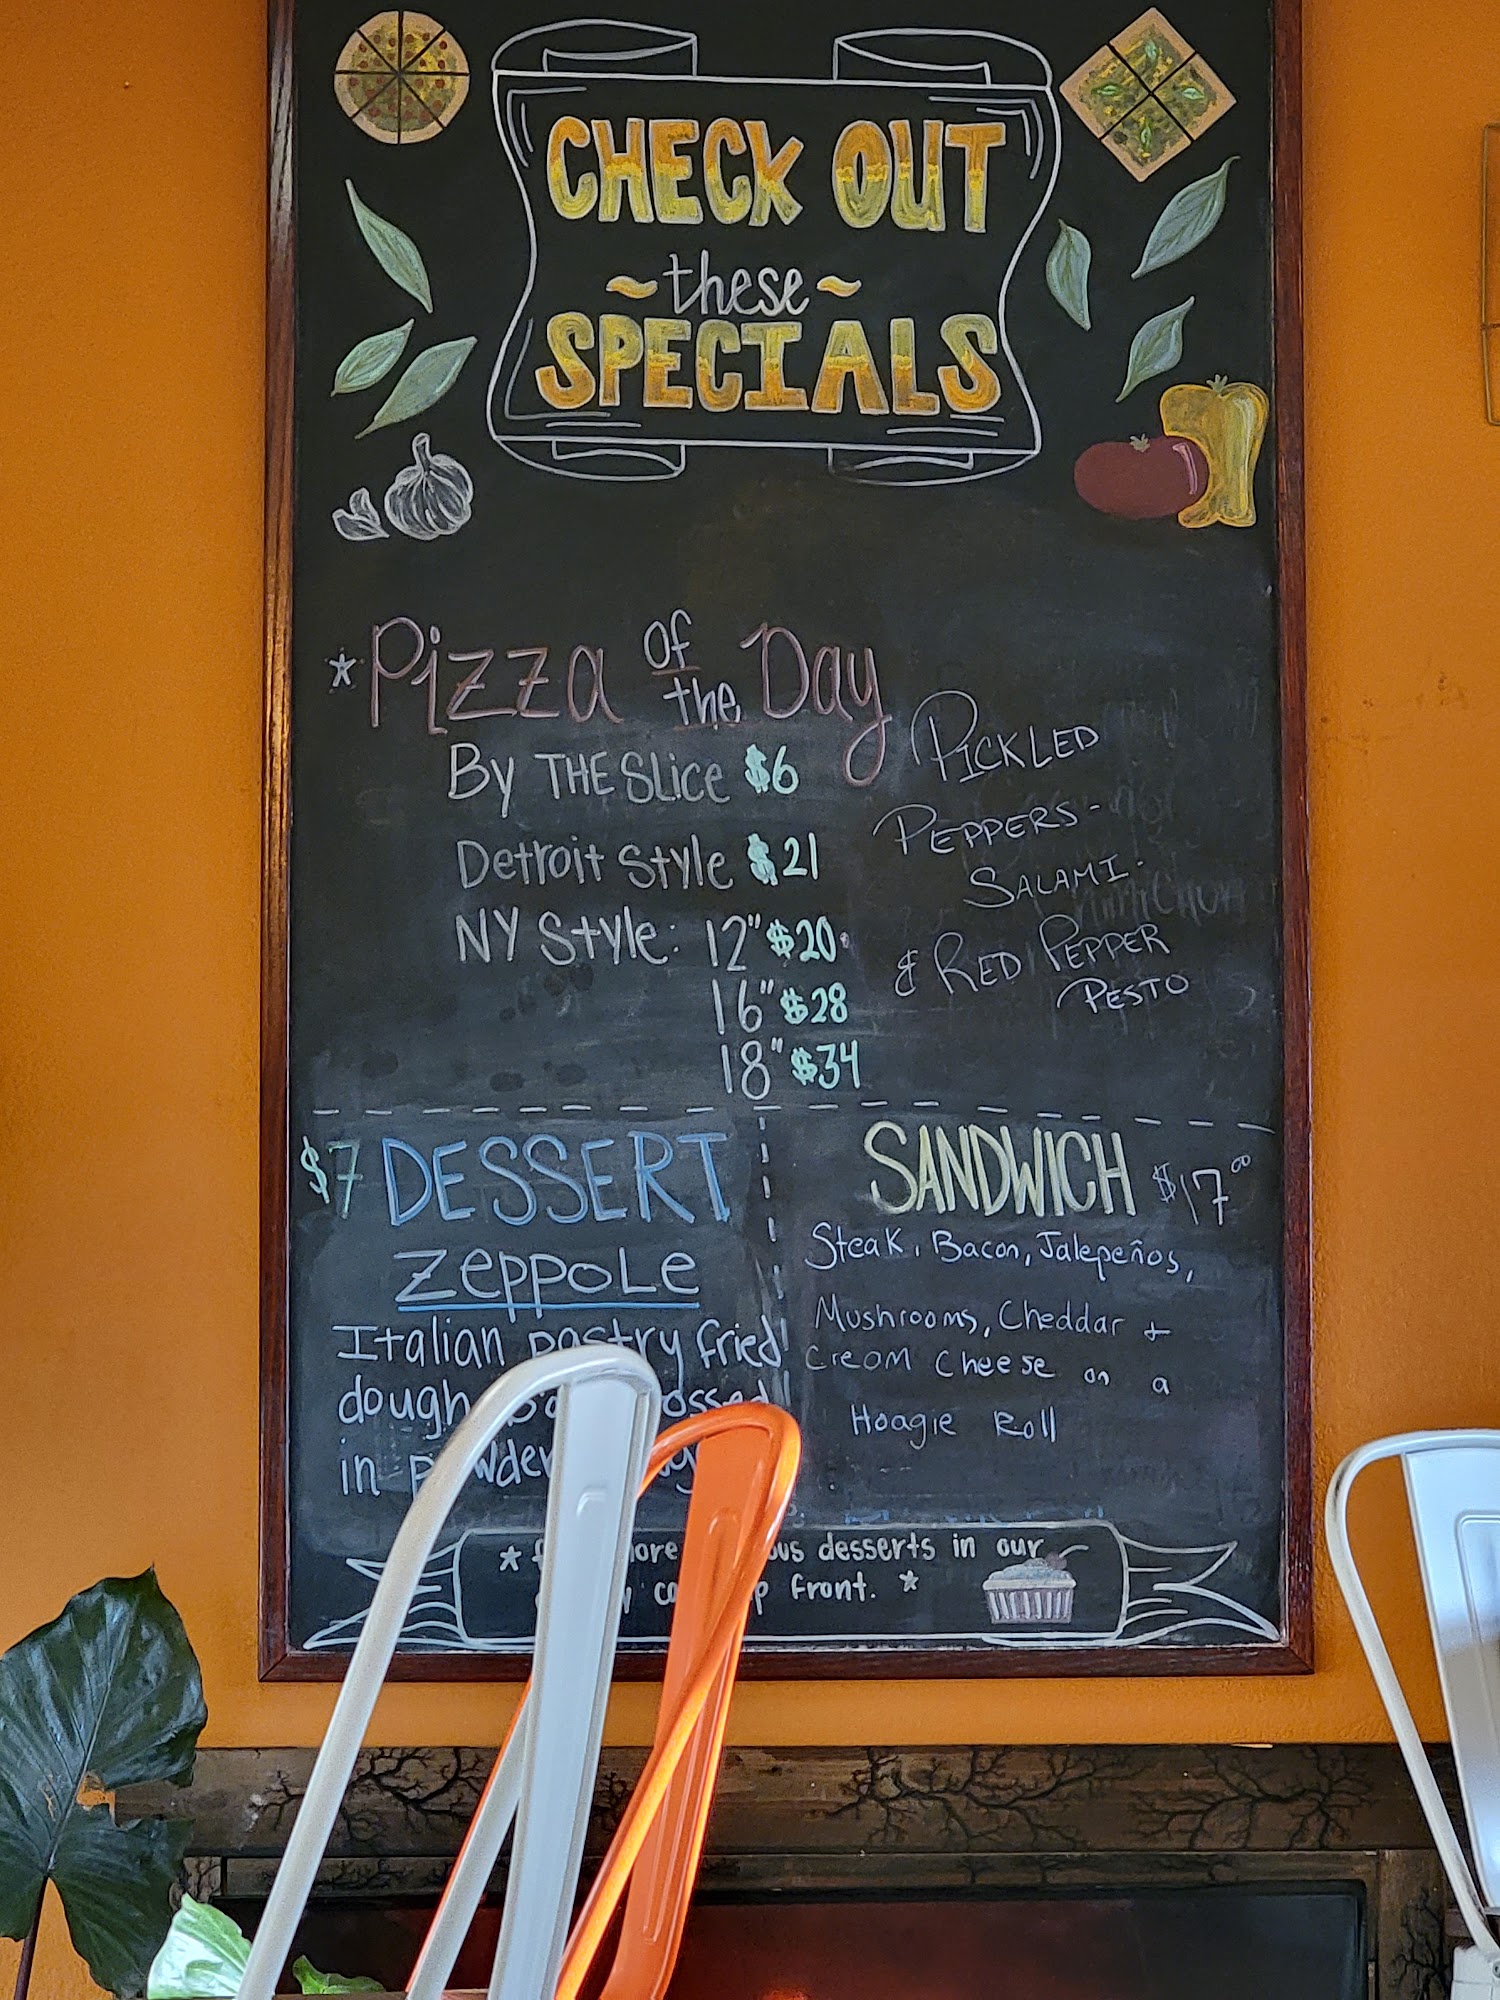 CHECK OUT
~these~
SPECIALS
*Pizza of the Day
By THE Slice $6
Detroit Style $21
NY Style: 12" $20
16" $28
18" $34
PICKLED
PEPPERS-
SALAMI-
& RED PEPPER
PESTO
$7 DESSERT
Zeppole
Italian pastry fried
dough
in
SANDWICH $17.00
Steak, Bacon, Jalepeños,
Mushrooms, Cheddar +
Cream Cheese on a
Hoagie Roll
* desserts in our
front. *